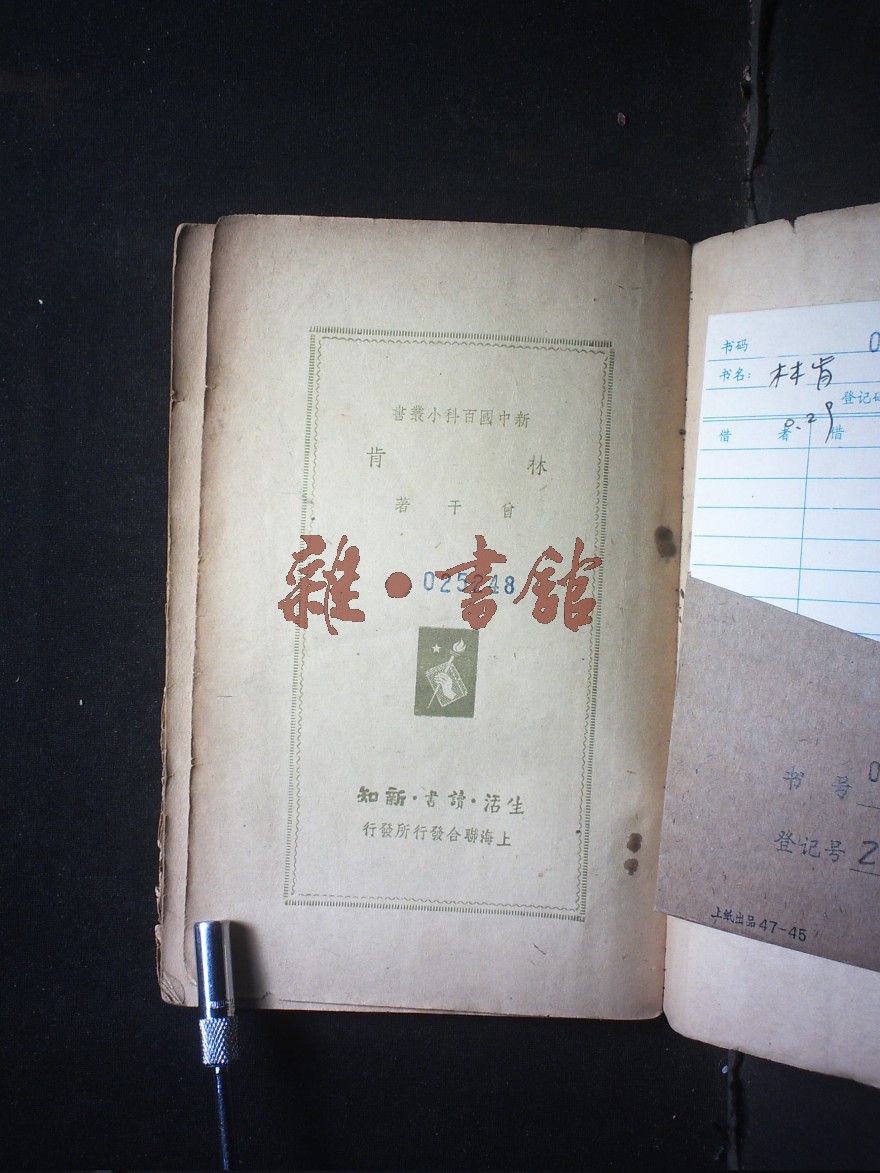 新中國百科小叢書
林肯
曾干著
雜·書館
025248
生活·讀書·新知
上海聯合發行所發行
书码 0
书名: 林肯
登记
0.29
借者 借
书号 0
登记号 2
上纸出品47-45